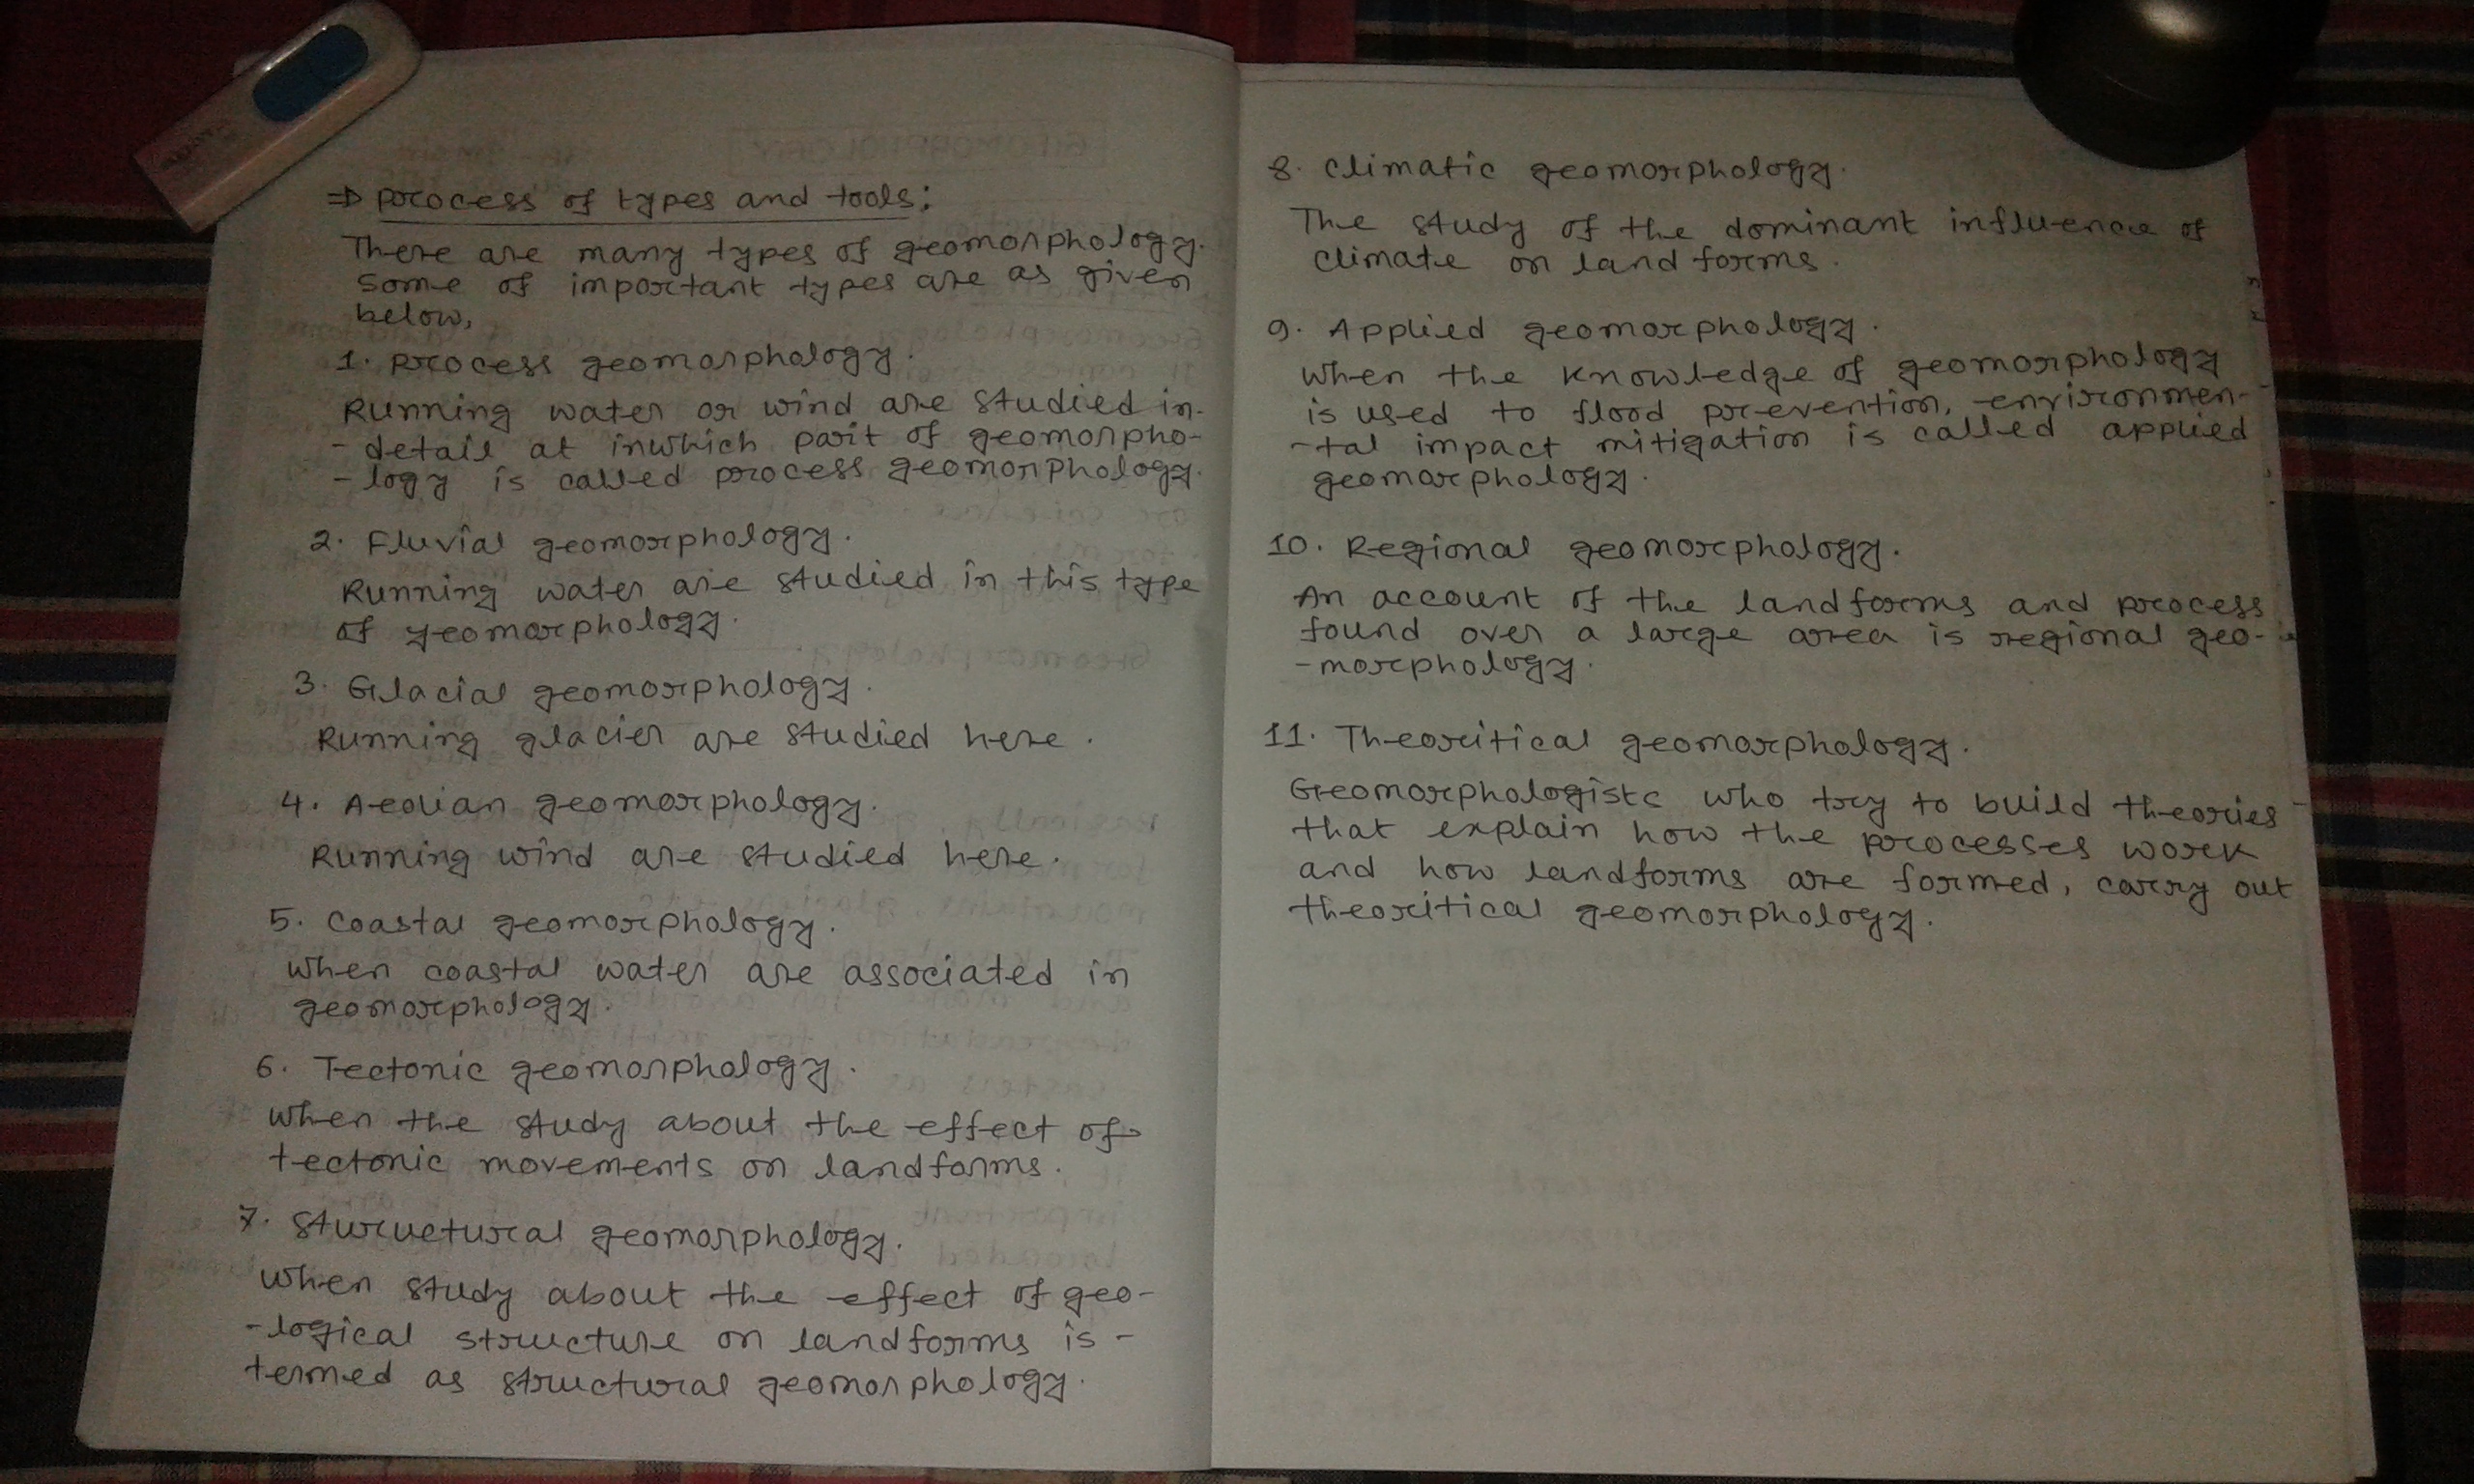 ⇒ process of types and tools:
There are many types of geomorphology.
some of important types are as given
below,
1. process geomorphology.
Running water or wind are studied in-
- detail at inwhich part of geomorpho-
- logy is called process geomorphology.
2. Fluvial geomorphology.
Running water are studied in this type
of geomorphology.
3. Glacial geomorphology.
Running glacier are studied here.
4. Aeolian geomorphology.
Running wind are studied here.
5. Coastal geomorphology.
when coastal water are associated in
geomorphology.
6. Tectonic geomorphology.
when the study about the effect of
tectonic movements on landforms.
7. Structural geomorphology.
when study about the effect of geo-
-logical structure on landforms is -
termed as structural geomorphology.
8. climatic geomorphology.
The study of the dominant influence of
climate on land forms.
9. Applied geomorphology.
when the knowledge of geomorphology
is used to flood prevention, environmen-
-tal impact mitigation is called applied
geomorphology.
10. Regional geomorphology.
An account of the landforms and process
found over a large area is regional geo-
-morphology.
11. Theoritical geomorphology.
Geomorphologists who try to build theories
that explain how the processes work
and how landforms are formed, carry out
theoritical geomorphology.